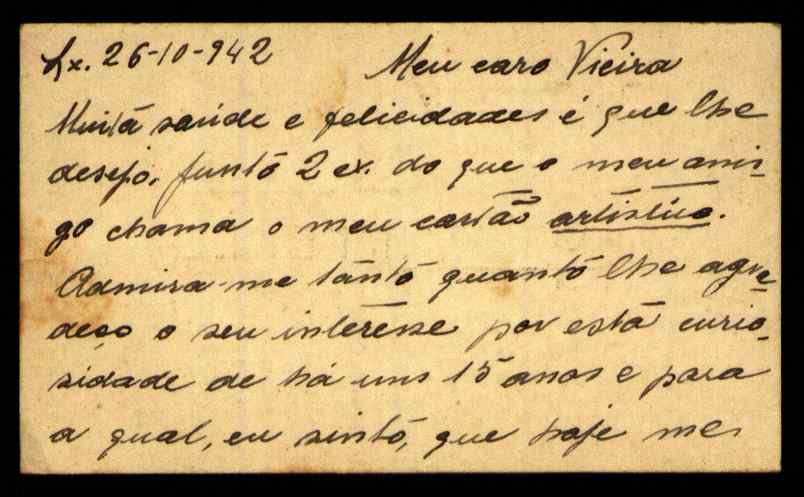 Lx. 26-10-942 Meu caro Vieira
Muita saúde e felicidades é que lhe
desejo. Junto 2 ex. do que o meu ami-
go chama o meu cartão artístico.
Admira-me tanto quanto lhe agra-
deço o seu interêsse por esta curio-
sidade de há uns 15 anos e para
a qual, eu sinto, que hoje me